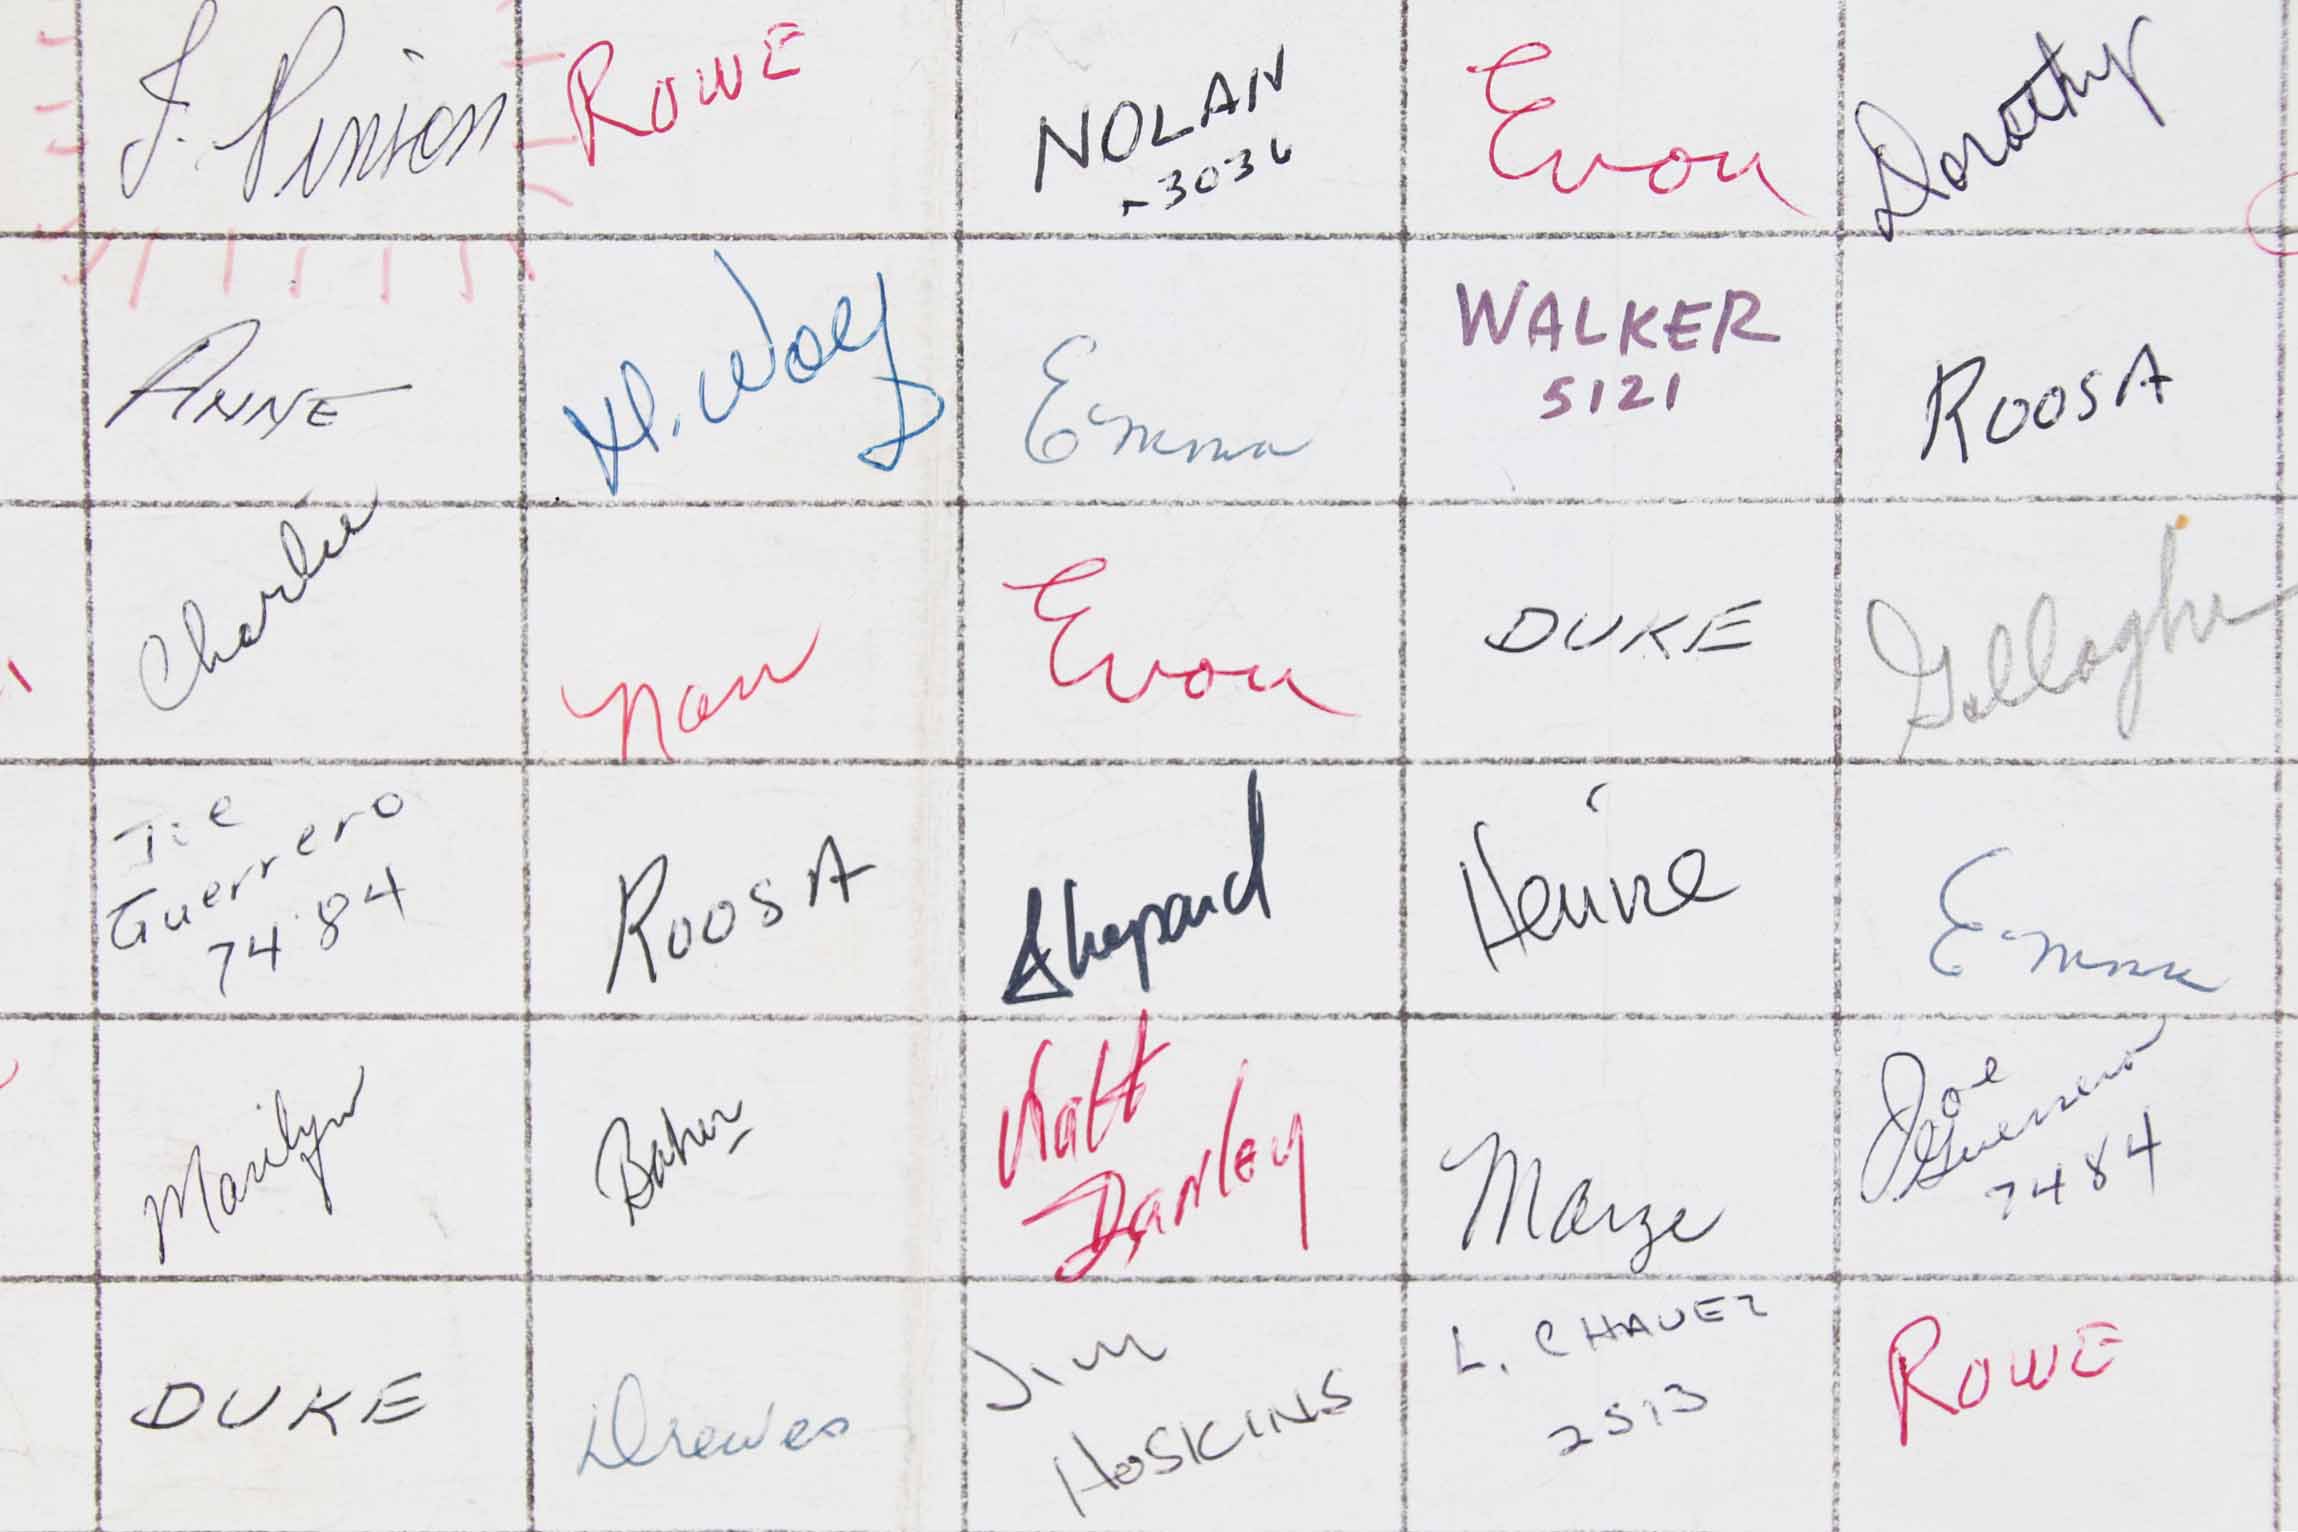 J. Pinion
ROWE
NOLAN
-3036
Evon
Dorothy
ANNE
Emma
WALKER
5121
ROOSA
Charlie
Nan
Evon
DUKE
Gallagher
Joe
Guerrero
7484
ROOSA
Shepard
Heinze
Emma
Marilyn
Baker
Matt
Danley
Marge
Joe
Guerrero
7484
DUKE
Drewes
Jim
HOSKINS
L. CHAVEZ
2513
ROWE